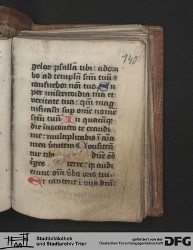 140
gelor psallam tibi: ado
bo ad templum scm tuū
confitebor nōi tuo S
per misericordia tua et
veritate tua: qm mag
nificasti sup om̄e nome
scm tuū In quacūq;
die inuocauero te exaudi
me: multiplicabis i aīa
mea
tur tibi
reges terre: q̄ audi
erunt om̄ia v̄ba oris tui
Et cantent i viis dnī:
Stadtbibliothek
und Stadtarchiv Trier
gefördert von der
Deutschen Forschungsgemeinschaft
DFG